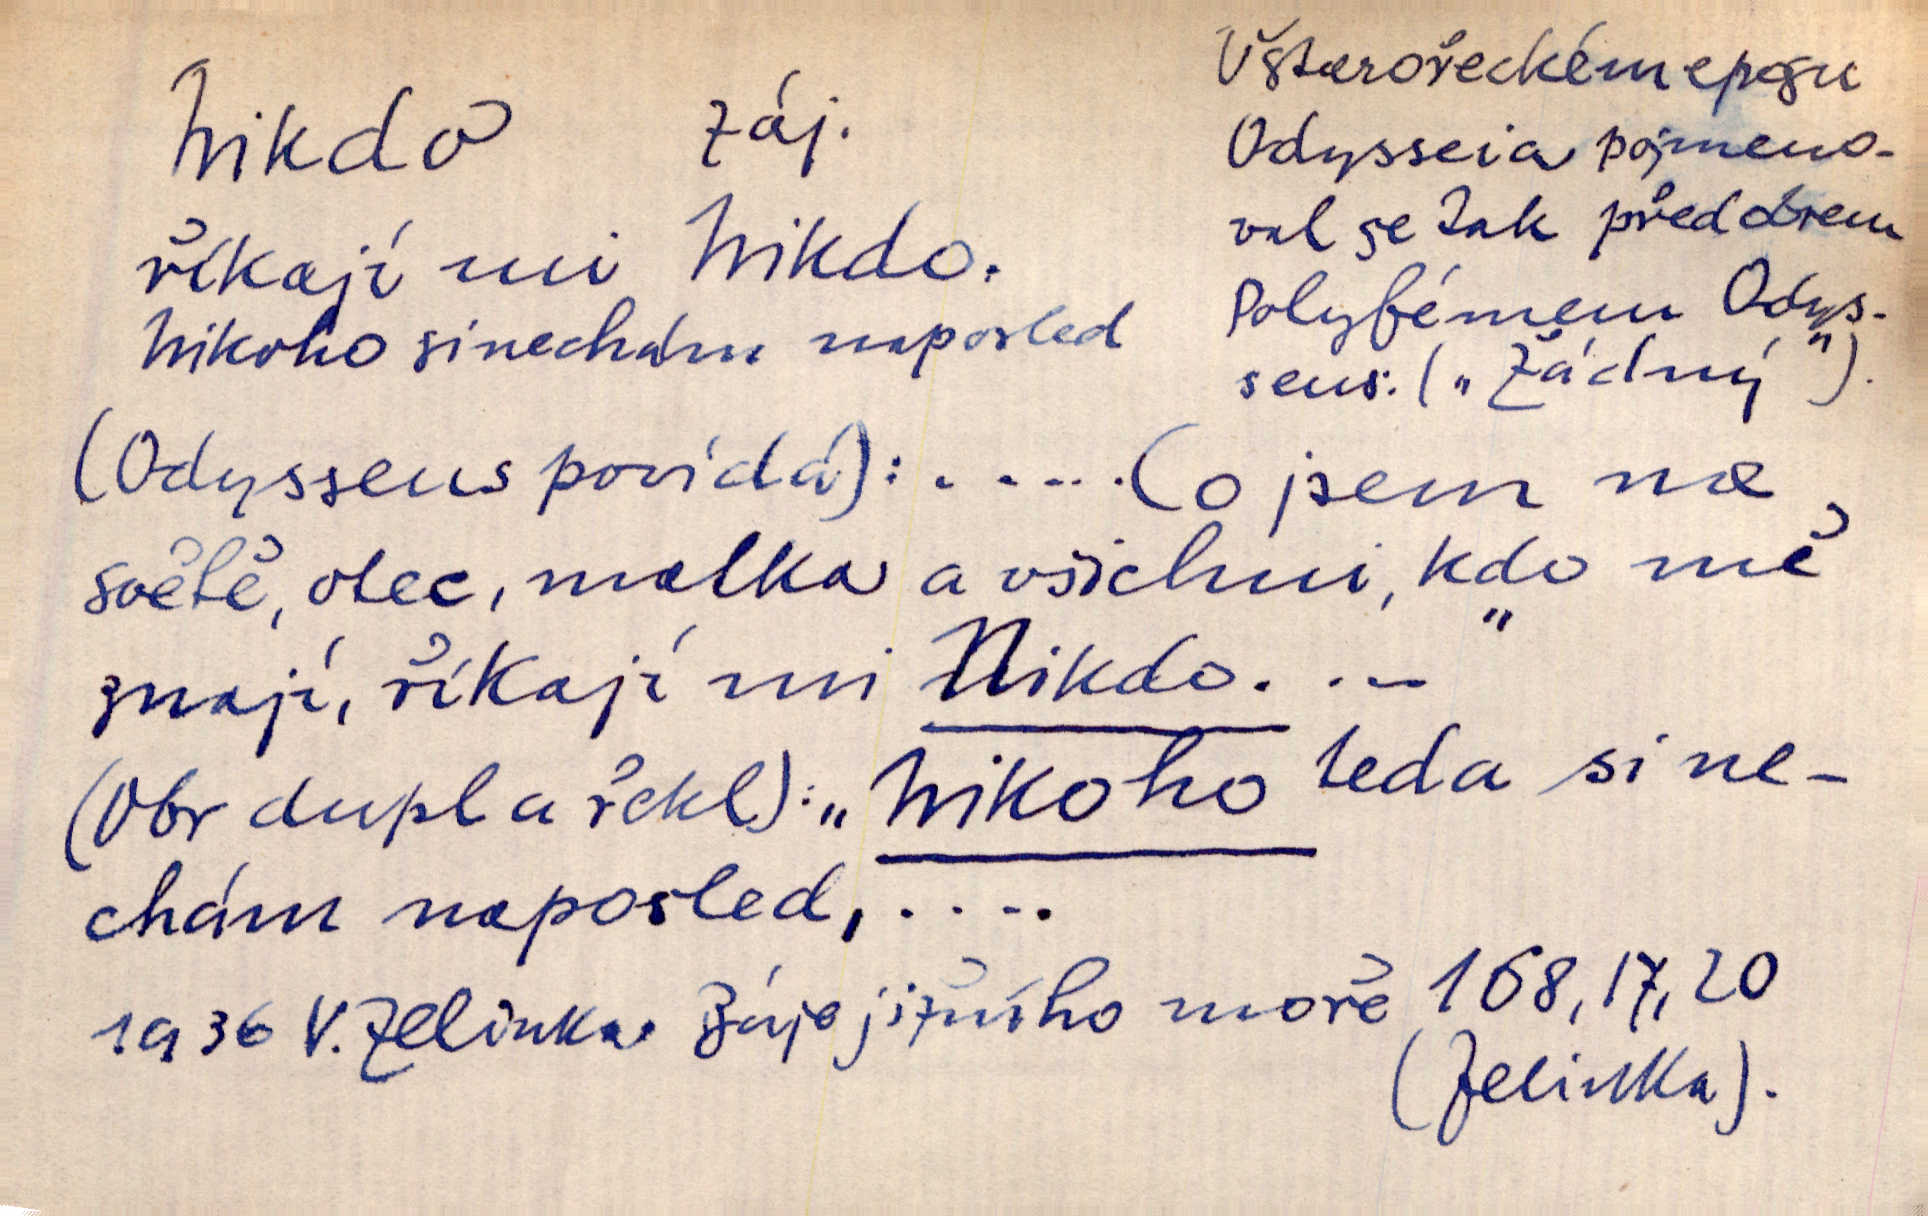 Nikdo záj.
říkají mi Nikdo.
Nikoho si nechám naposled
V starořeckém eposu
Odysseia pojmeno-
val se tak před obrem
Polyfémem Odys-
seus: („Žádný").
(Odysseus povídá): ..... Co jsem na
světě, otec, matka a všichni, kdo mě
znají, říkají mi Nikdo. ..."
(Obr dupl a řekl): „Nikoho teda si ne-
chám naposled, ....
1936 V. Zelinka. Báje jižního moře 168, 17, 20
(Zelinka).